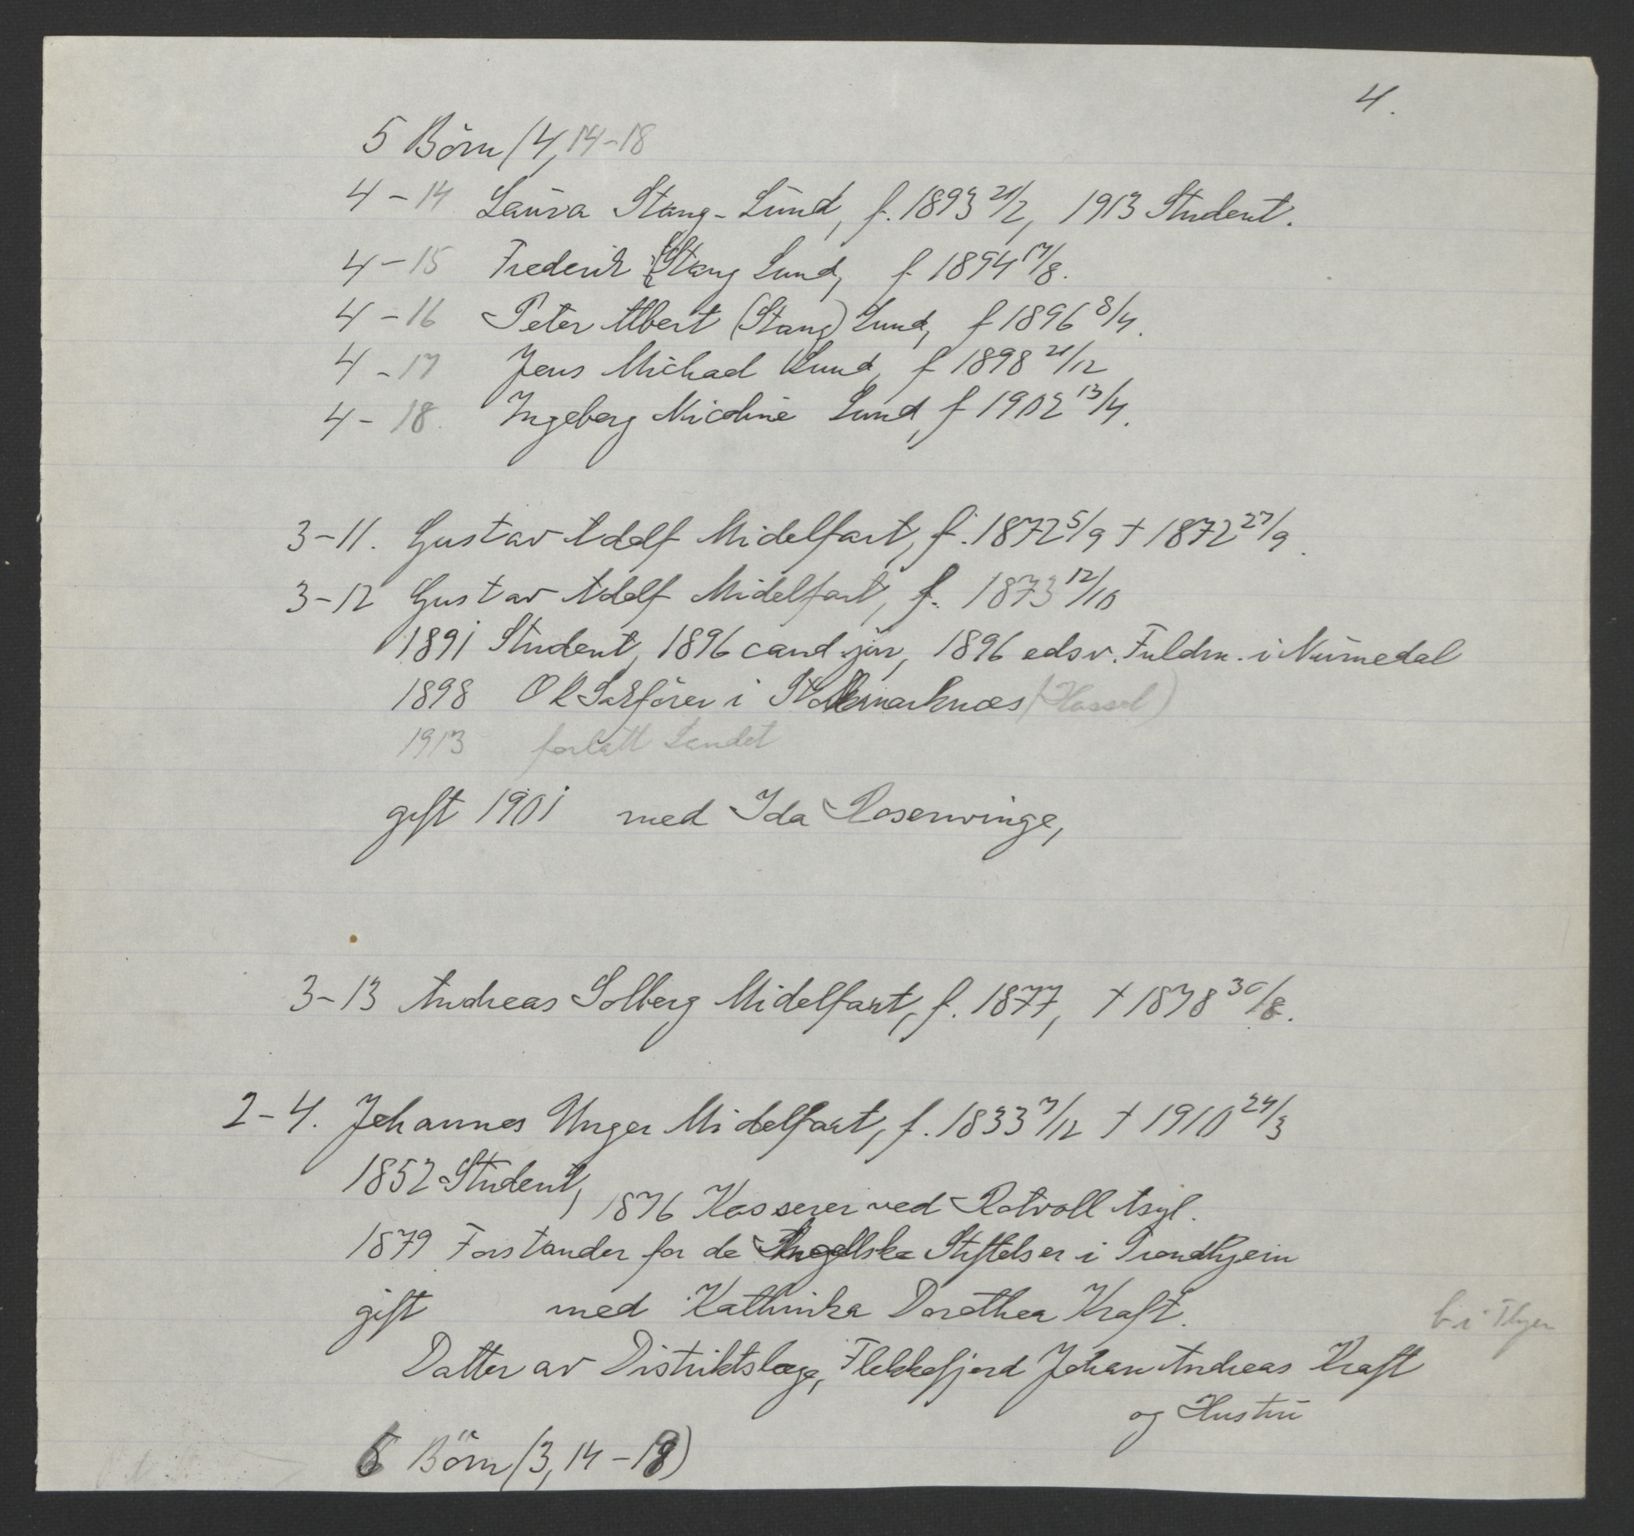 4.
5 Börn (4, 14-18
4-14 Laura Stang-Lund, f. 1893 21/2, 1913 Student.
4-15 Frederik (Stang Lund, f 1894 17/8.
4-16 Peter Albert (Stang) Lund, f 1896 8/4.
4-17 Jens Michael Lund, f 1898 21/12
4-18. Ingeborg Nicoline Lund, f 1902 13/4.
3-11. Gustav Adolf Midelfart, f. 1872 5/9 † 1872 27/9.
3-12 Gustav Adolf Midelfart, f. 1873 12/10
1891 Student, 1896 cand. jur, 1896 edsv. Fuldm. i Numedal
1898 O R Sakförer i Stokmarknæs (Hassel)
1913 forlatt Landet
gift 1901 med Ida Rosenvinge,
3-13 Andreas Solberg Midelfart, f. 1877, † 1878 30/8.
2-4. Johannes Unger Midelfart, f. 1833 7/12 † 1910 24/3
1852 Student, 1876 Kasserer ved Rotvoll Asyl.
1879 Forstander for de Angellske Stiftelser i Trondhjem
gift med Kathinka Dorothea Kraft.
b. i Thjem
Datter av Distriktslæge, Flekkefjord Johan Andreas Kraft
og Hustru
5 Börn (3, 14-18)